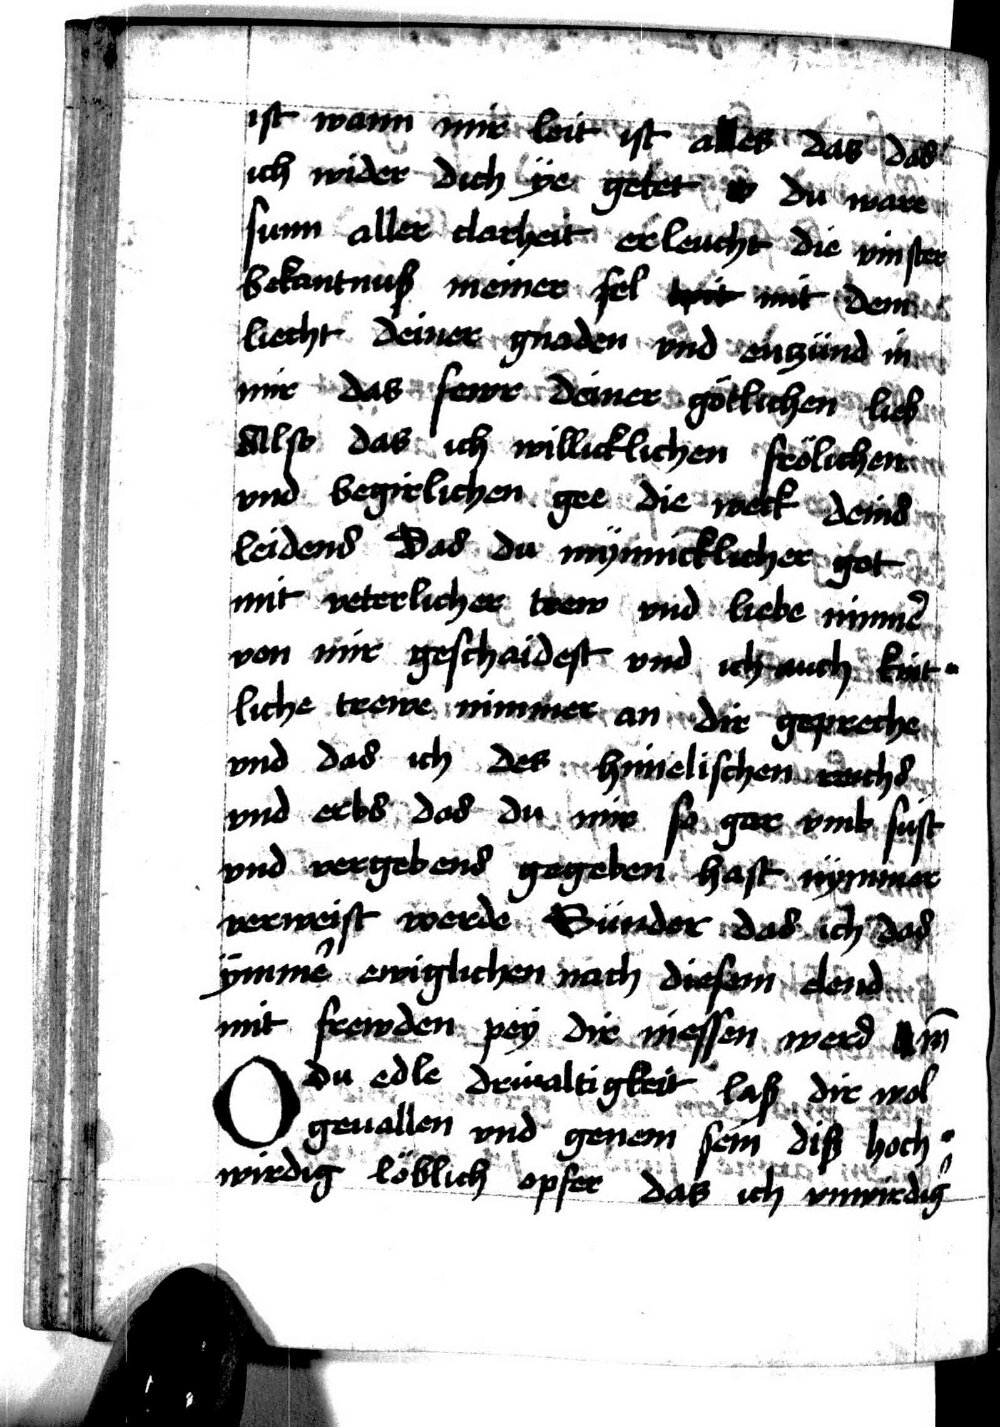 ist wann mir leit ist alles das das
ich wider dich ÿe getet o du ware
sunn aller clarheit erleucht die vinster
bekantnuß meiner sel mit dem
liecht deiner gnaden vnd entzünd in
mir das fewr deiner götlichen lieb
Also das ich willicklichen frölichen
vnd begirlichen gee die weck deins
leidens Das du mÿnnicklicher got
mit veterlicher trew vnd liebe nimmer̉
von mir geschaidest vnd ich auch kint-
liche trewe nimmer an dir gepreche
vnd das ich des himelischen reichs
vnd erbs das du mir so gar vmb sust
vnd vergebens gegeben hast nÿmmer
verweist werde Sünder das ich das
ÿmmer̉ ewiglichen nach diesem elend
mit frewden peÿ dir niessen werd
O du edle driualtigkeit laß dir wol
geuallen vnd genem sein diß hoch-
wirdig löblich opfer das ich vnwirdig̉